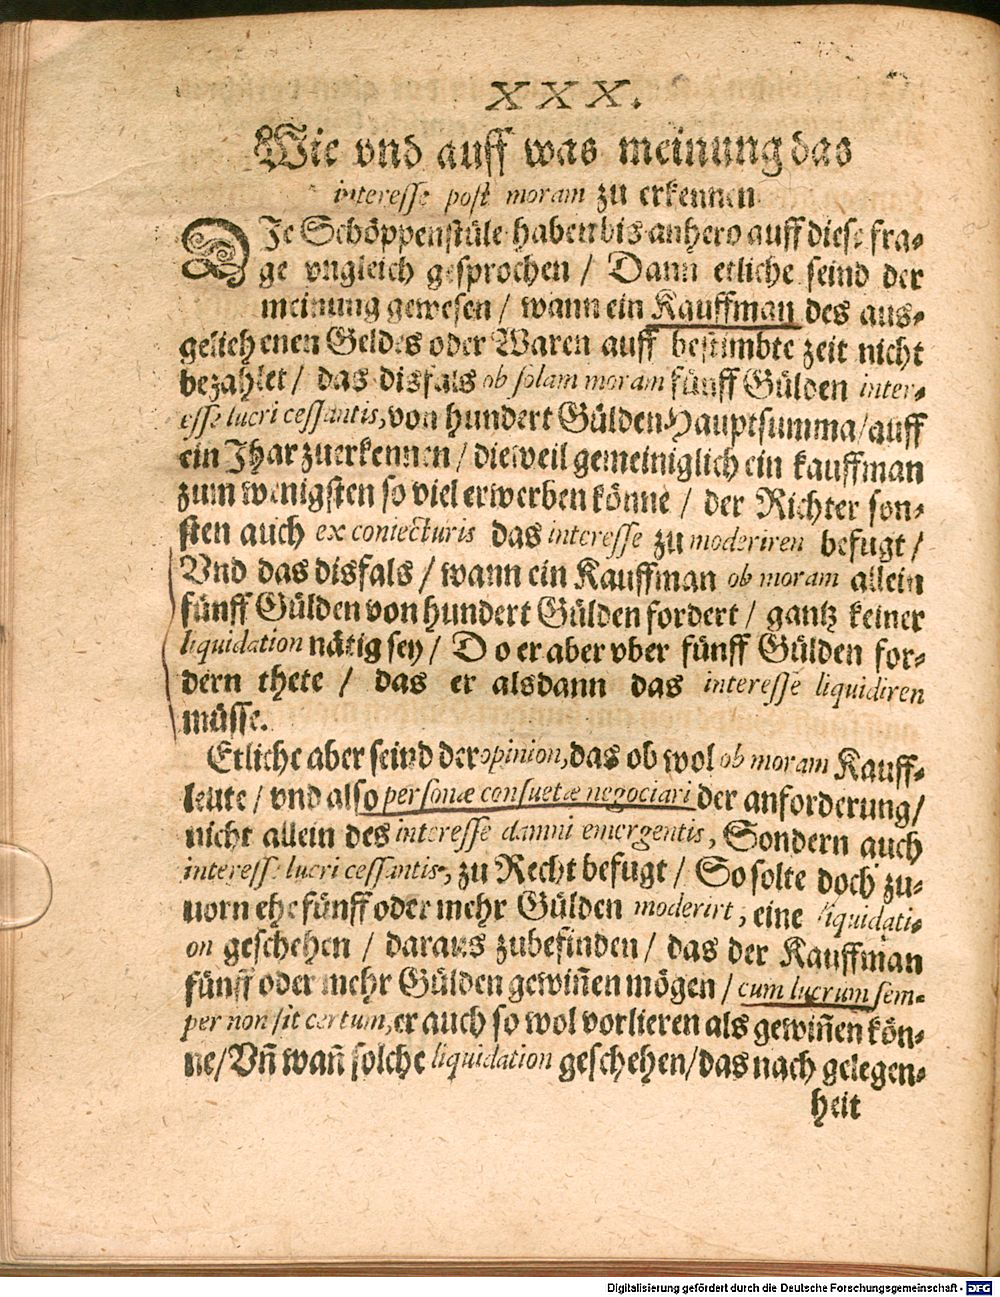 XXX.
Wie vnd auff was meinung das
interesse post moram zu erkennen
DJe Schöppenstüle haben bis anhero auff diese fra-
ge vngleich gesprochen / Dann etliche seind der
meinung gewesen / wann ein Kauffman des aus-
geliehenen Geldes oder Waren auff bestimbte zeit nicht
bezahlet / das disfals ob solam moram fünff Gülden inter-
esse lucri cessantis, von hundert Gülden Hauptsumma/auff
ein Jhar zuerkennen / dieweil gemeiniglich ein kauffman
zum wenigsten so viel erwerben könne / der Richter son-
sten auch ex coniecturis das interesse zu moderiren befugt /
Vnd das disfals / wann ein Kauffman ob moram allein
fünff Gülden von hundert Gülden fordert / gantz keiner
liquidation nätig sey / Do er aber vber fünff Gülden for-
dern thete / das er alsdann das interesse liquidiren
müsse.
Etliche aber seind der opinion, das ob wol ob moram Kauff-
leute / vnd also personæ consuetæ negociari der anforderung/
nicht allein des interesse damni emergentis, Sondern auch
interesse lucri cessantis, zu Recht befugt / So solte doch zu-
uorn ehe fünff oder mehr Gülden moderirt, eine liquidati-
on geschehen / daraus zubefinden / das der Kauffman
fünff oder mehr Gülden gewiñen mögen / cum lucrum sem-
per non sit certum, er auch so wol vorlieren als gewiñen kön-
ne/Vñ wañ solche liquidation geschehen/das nach gelegen-
heit
Digitalisierung gefördert durch die Deutsche Forschungsgemeinschaft - DFG